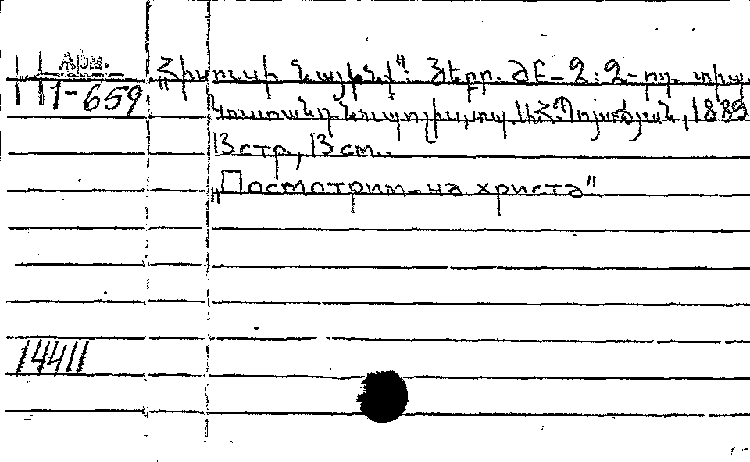 Арм.
1-659
„Յիսուսի նայինք". Յերր. մէ-2: 2-րդ. տիպ.
Կոստանդնուպոլիս, տպ. Ա.Յ. Պոյաճեան, 1889
13 стр, 13 см.
„Посмотрим-на христа"
14411